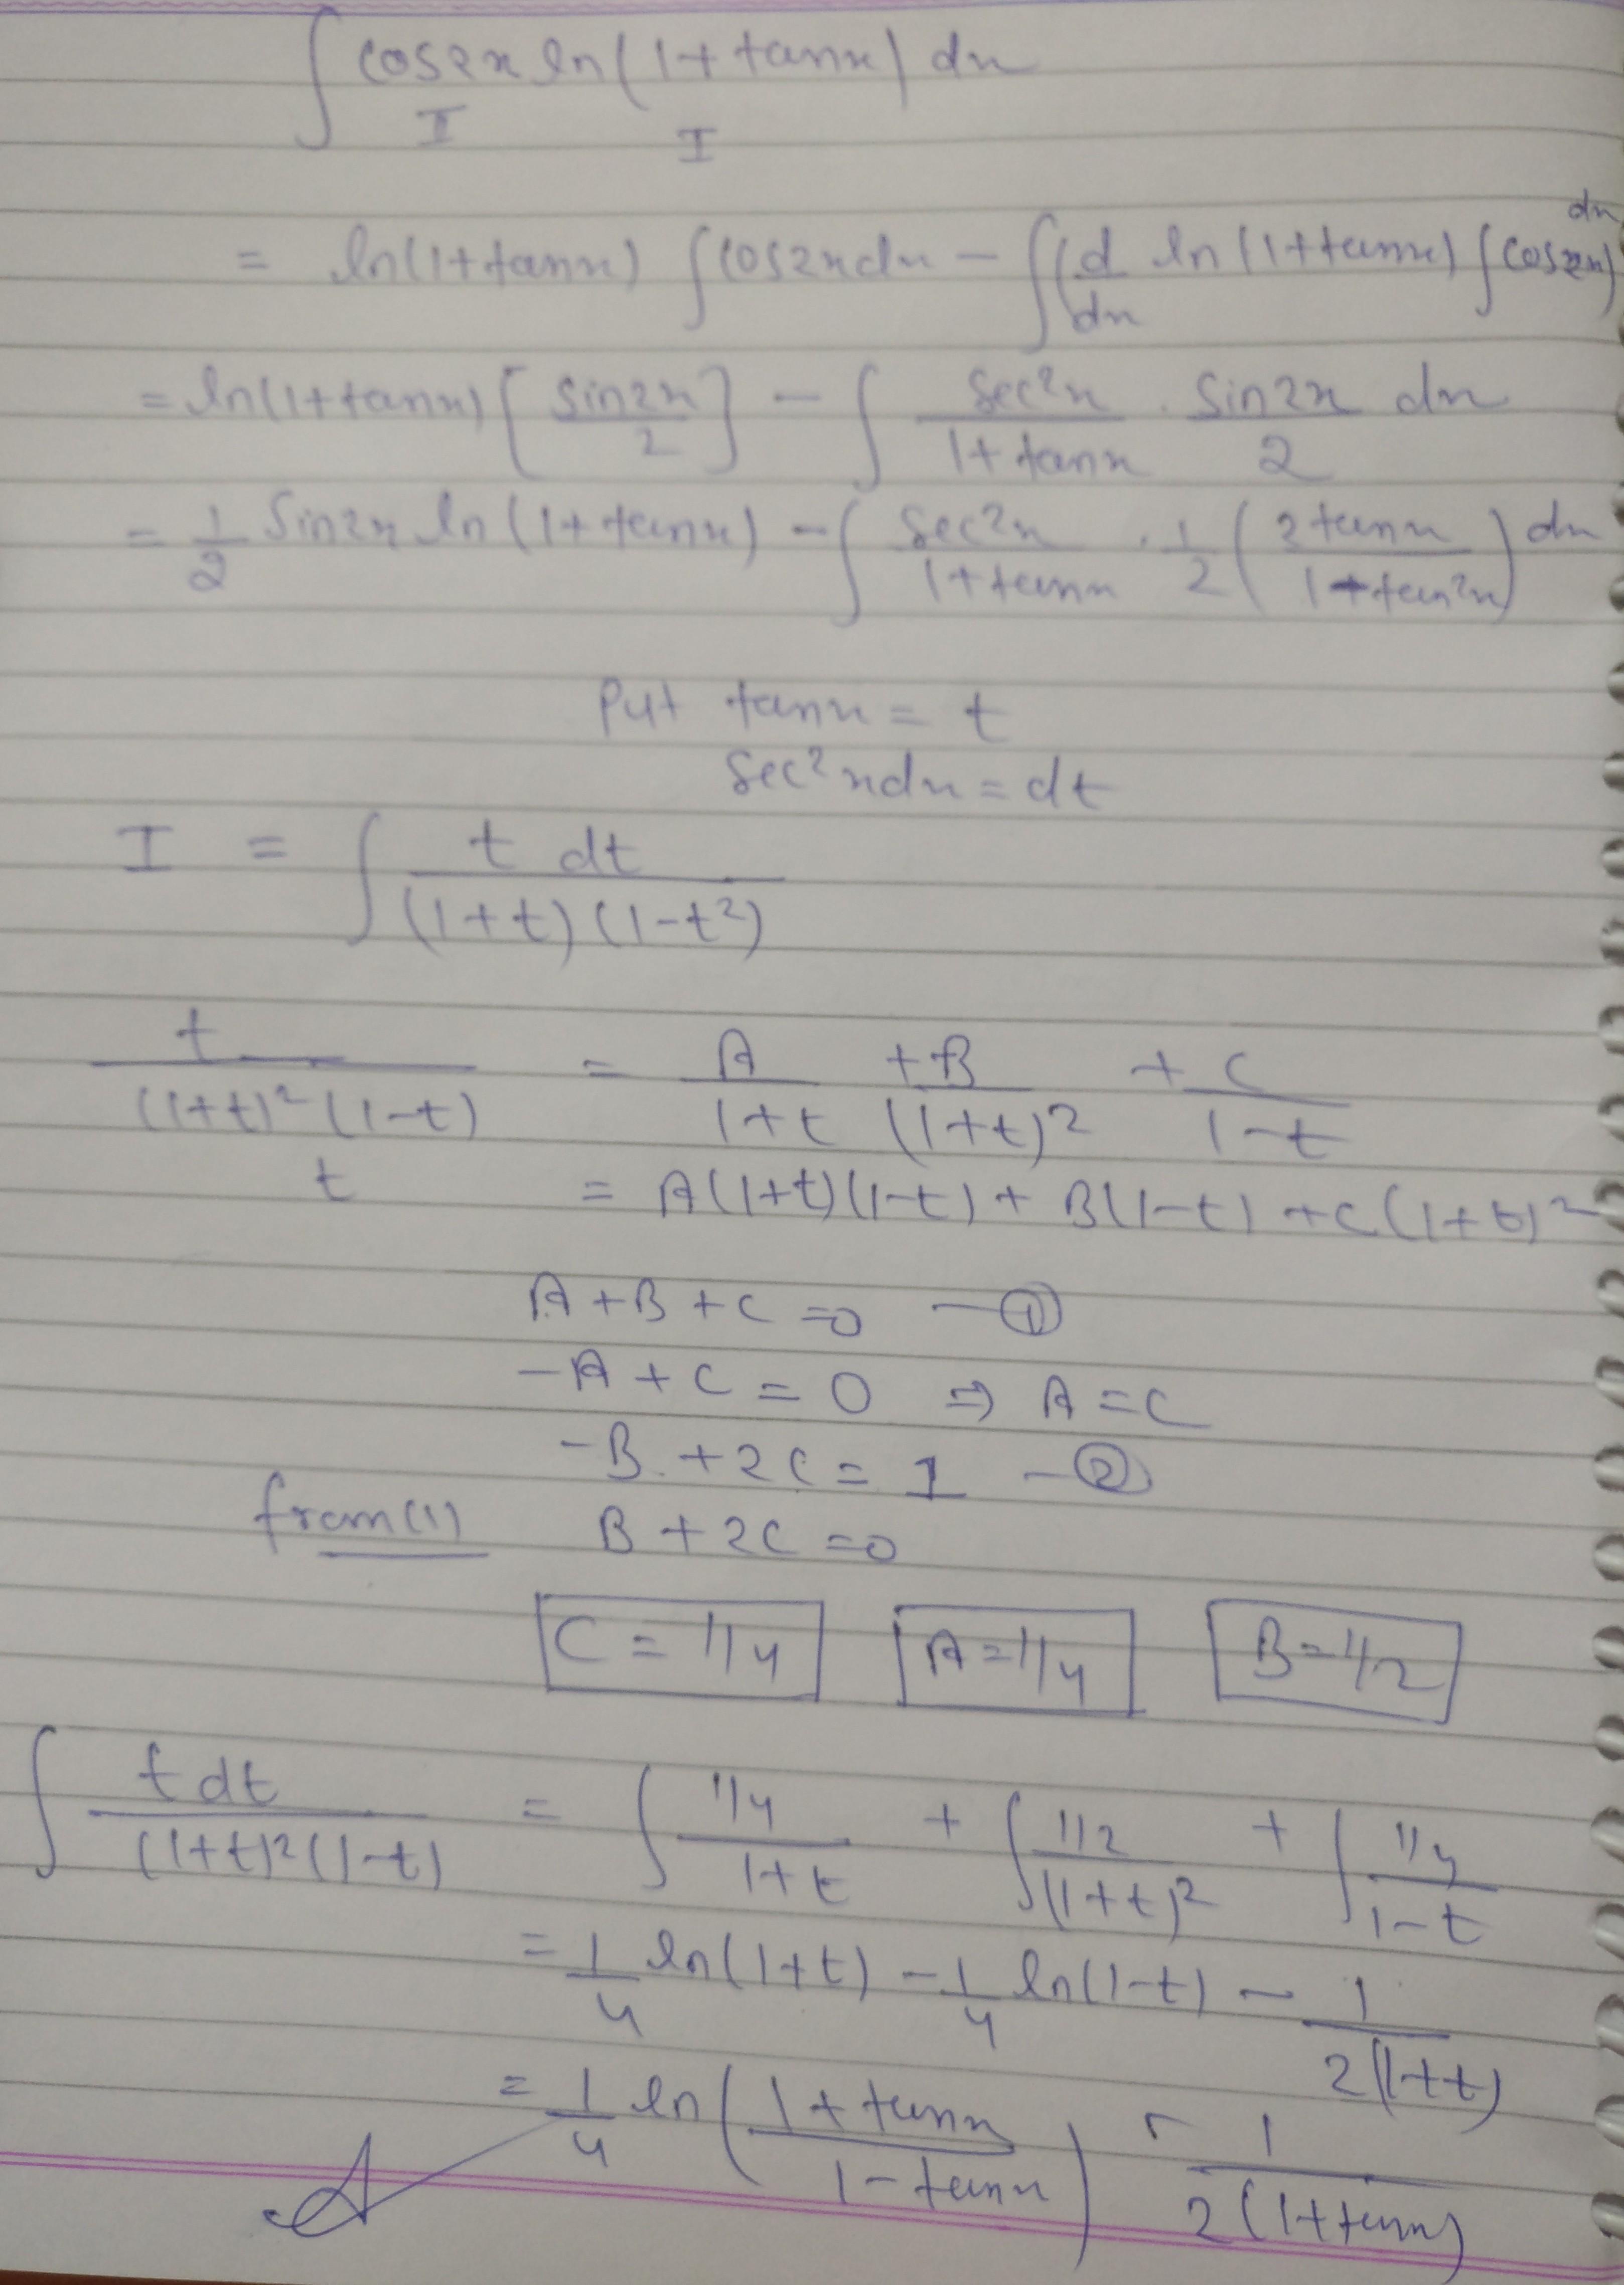 ∫ cos2x ln(1+tanx) dx
I I
= ln(1+tanx) ∫cos2xdx - ∫(d/dx ln(1+tanx) ∫cos2x) dx
= ln(1+tanx) [sin2x/2] - ∫ sec²x/(1+tanx) . sin2x/2 dx
= 1/2 sin2x ln(1+tanx) - ∫ sec²x/(1+tanx) . 1/2 (2tanx/(1+tan²x)) dx
Put tanx = t
sec²xdx = dt
I = ∫ t dt/((1+t)(1-t²))
t/((1+t)²(1-t)) = A/(1+t) + B/(1+t)² + C/(1-t)
t = A(1+t)(1-t) + B(1-t) + C(1+t)²
A+B+C=0 —①
-A+C=0 ⇒ A=C
-B+2C=1 —②
from(1) B+2C=0
C=1/4 A=1/4 B=1/2
∫ tdt/((1+t)²(1-t)) = ∫ 1/4/(1+t) + ∫ 1/2/(1+t)² + ∫ 1/4/(1-t)
= 1/4 ln(1+t) - 1/4 ln(1-t) - 1/(2(1+t))
= 1/4 ln((1+tanx)/(1-tanx)) - 1/(2(1+tanx))